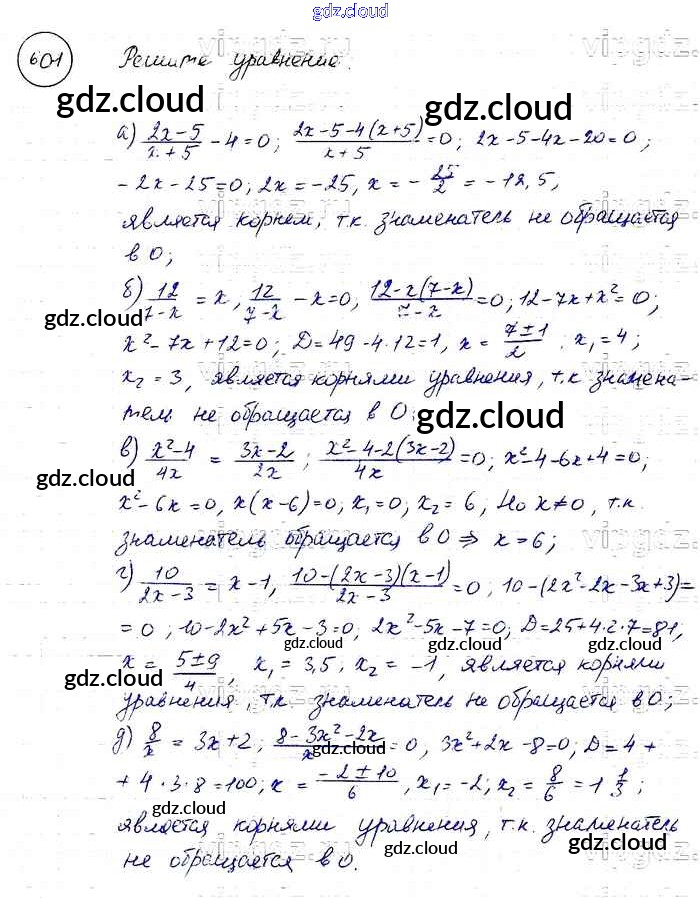 gdz.cloud
601 Решите уравнение.
gdz.cloud gdz.cloud
а) (2x-5)/(x+5) - 4 = 0; (2x-5-4(x+5))/(x+5) = 0; 2x-5-4x-20=0;
-2x-25=0; 2x=-25, x = -25/2 = -12,5,
является корнем, т.к. знаменатель не обращается
в 0;
б) 12/(7-x) = x, 12/(7-x) - x=0, (12-x(7-x))/(7-x) = 0; 12-7x+x²=0;
gdz.cloud gdz.cloud
x²-7x+12=0; D=49-4·12=1, x = (7±1)/2. x₁=4;
x₂=3, является корнями уравнения, т.к знамена-
тель не обращается в 0;
gdz.cloud
в) (x²-4)/4x = (3x-2)/2x; (x²-4-2(3x-2))/4x = 0; x²-4-6x+4=0;
gdz.cloud gdz.cloud
x²-6x=0, x(x-6)=0; x₁=0; x₂=6, Но x≠0, т.к.
знаменатель обращается в 0 ⇒ x=6;
г) 10/(2x-3) = x-1, (10-(2x-3)(x-1))/(2x-3) = 0; 10-(2x²-2x-3x+3)=
gdz.cloud gdz.cloud
=0; 10-2x²+5x-3=0; 2x²-5x-7=0; D=25+4·2·7=81,
x = (5±9)/4, x₁=3,5, x₂=-1, является корнями
gdz.cloud gdz.cloud
уравнения, т.к. знаменатель не обращается в 0;
д) 8/x = 3x+2; (8-3x²-2x)/x = 0, 3x²+2x-8=0; D=4+
gdz.cloud
+4·3·8=100; x = (-2±10)/6, x₁=-2; x₂ = 8/6 = 1 1/3;
gdz.cloud
является корнями уравнения, т.к. знаменатель
gdz.cloud gdz.cloud
не обращается в 0.